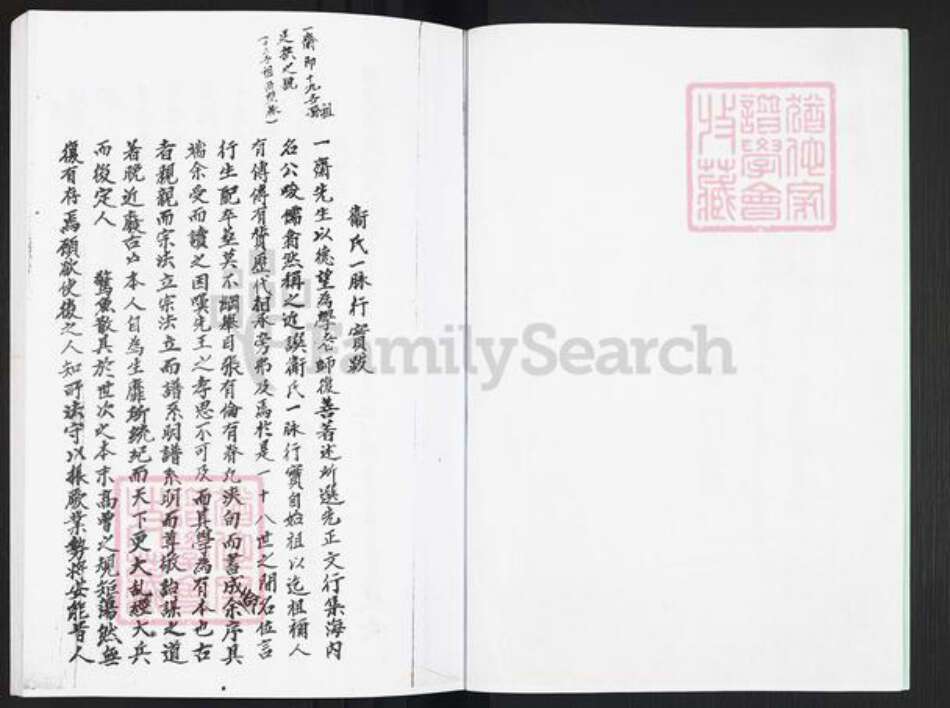 一齋即十九世祖
廷
之號
衞氏一脉行實跋
一齋先生以德望為學者師復善著述所選先正文行集海內
名公峻儒翕然稱之近譔衞氏一脉行實自始祖以迄祖禰人
有傳傳有贊歷代相承旁弗及焉於是一十八世之間名位言
行生配卒塟莫不綱舉目張有倫有脊九浹旬而書成余序其
端余受而讀之因嘆先王之孝思不可及而其學為有本也古
者親親而宗法立宗法立而譜系明譜系明而尊敬詒謀之道
着晚近廢古
本人自為生靡所統紀而天下更大乱經大兵
而後定人
驚魚散其於世次之本末高曾之規矩蕩然無
復有存焉願欲使後之人知所法守以振厥業勢將安能昔人
猶他家譜學會收藏
FamilySearch